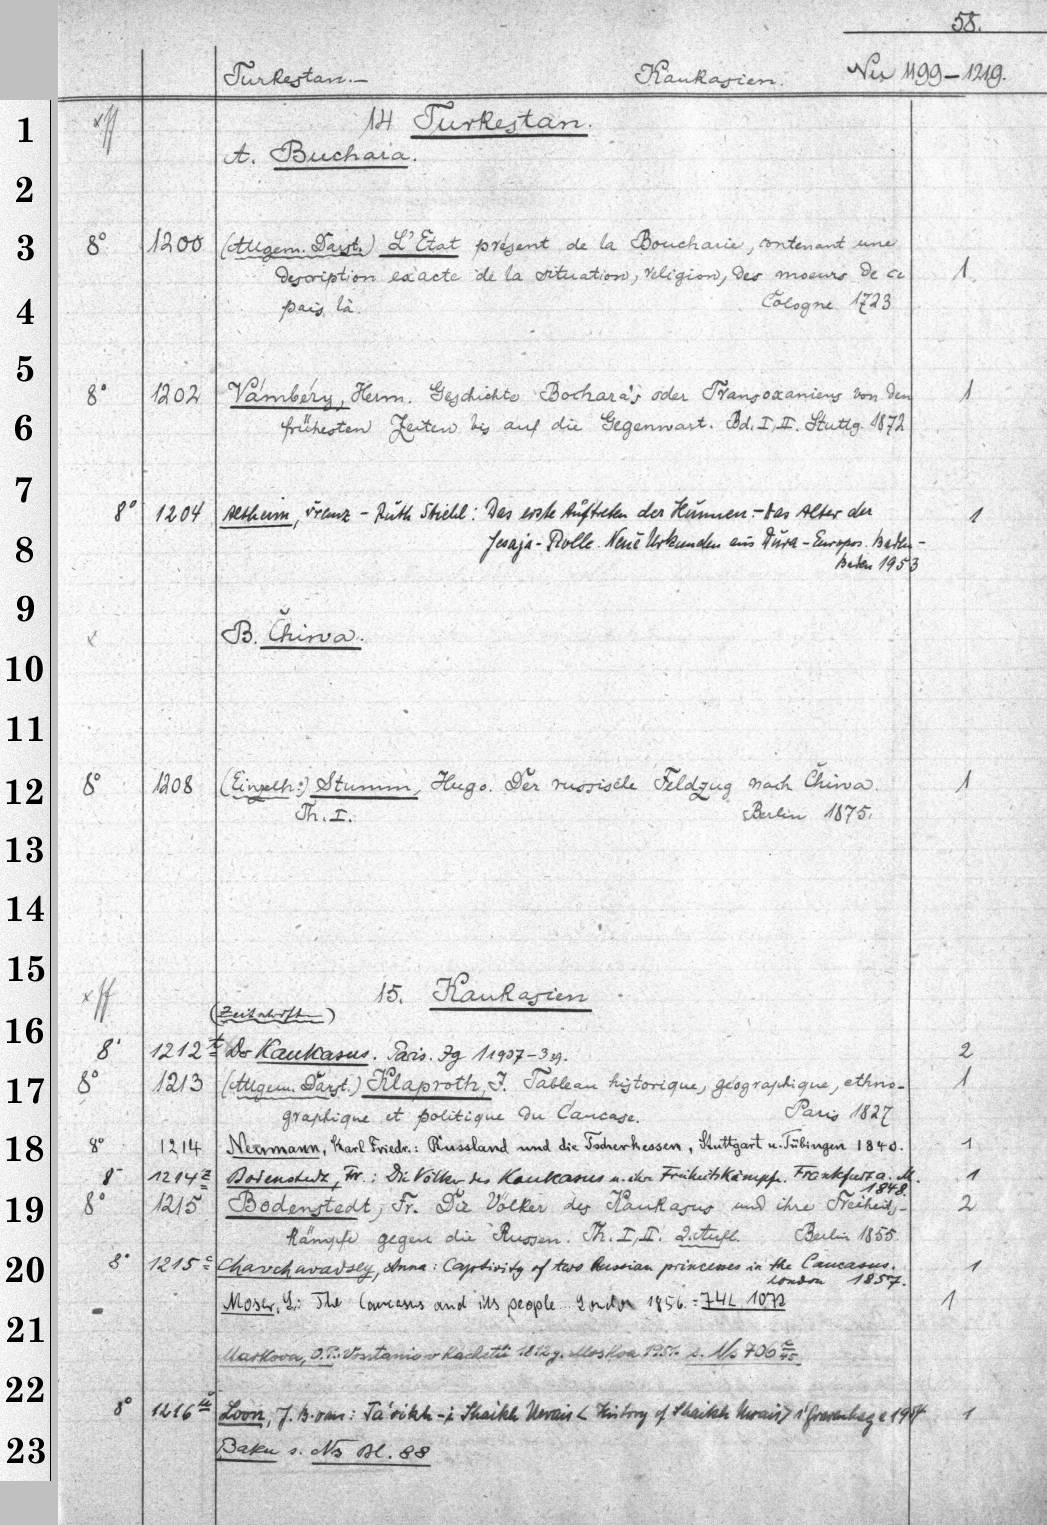 58.
Turkestan.— Kaukasien. Nis 1199–1219.
1 14 Turkestan.
A. Buchara.
2
3 8° 1200 (Allgem. Darst.) L'Etat présent de la Boucharie, contenant une
description exacte de la situation, religion, des moeurs de ce 1
4 pais là. Cologne 1723
5
8° 1202 Vámbéry, Herm. Geschichte Bochara's oder Transoxaniens von den 1
6 frühesten Zeiten bis auf die Gegenwart. Bd. I, II. Stuttg. 1872
7
8° 1204 Altheim, Franz – Ruth Stiehl: Das erste Auftreten der Hunnen.– Das Alter der 1
8 Jesaja-Rolle. Neue Urkunden aus Dura-Europos. Baden-
Baden 1953
9
x B. Chiwa.
10
11
12 8° 1208 (Einzelh:) Stumm, Hugo. Der russische Feldzug nach Chiwa. 1
Th. I. Berlin 1875.
13
14
15
xff 15. Kaukasien
(Zeitschrift)
16
8° 1212 Der Kaukasus. Paris. Jg 1 1937–3 39. 2
17 8° 1213 (Allgem. Darst.) Klaproth, J. Tableau historique, géographique, ethno- 1
graphique et politique du Caucase. Paris 1827
18 8° 1214 Neumann, Karl Friedr.: Russland und die Tscherkessen, Stuttgart u. Tübingen 1840. 1
8° 1214 Bodenstedt, Fr.: Die Völker des Kaukasus u. ihre Freiheitskämpfe. Frankfurt a. M. 1
1848.
19 8° 1215 Bodenstedt, Fr. Die Völker des Kaukasus und ihre Freiheits- 2
kämpfe gegen die Russen. Th. I, II. 2. Aufl. Berlin 1855
20 8° 1215 c Chavchavadsey, Anna: Captivity of two Russian princesses in the Caucasus. 1
London 1857.
Moser, L: The Caucasus and its people. London 1856. = 74L 1072 1
21
Markova, O.P.: Vosstanie v Kachetii 1812 g. Moskva 1951. s. Ns 706
22
8° 1216 Loon, J. B. van: Ta'rikh-i Shaikh Uwais < History of Shaikh Uwais > s'Gravenhage 1954 1
23 Baku s. Ns Bl. 88